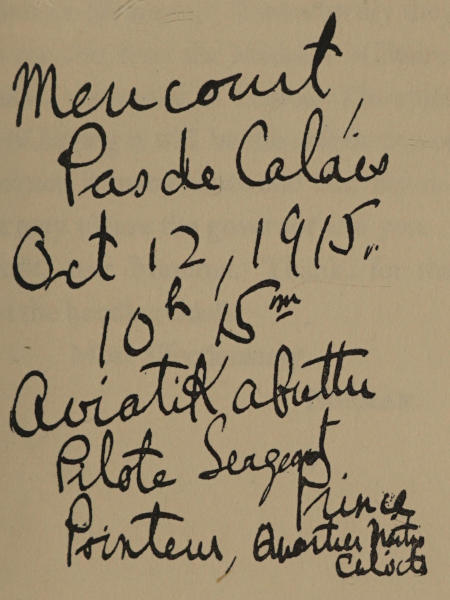 Mencourt,
Pas de Calais
Oct 12, 1915.
10h 15m
Aviatik abattu
Pilote Seargent
Prince
Pointeur, Quartier